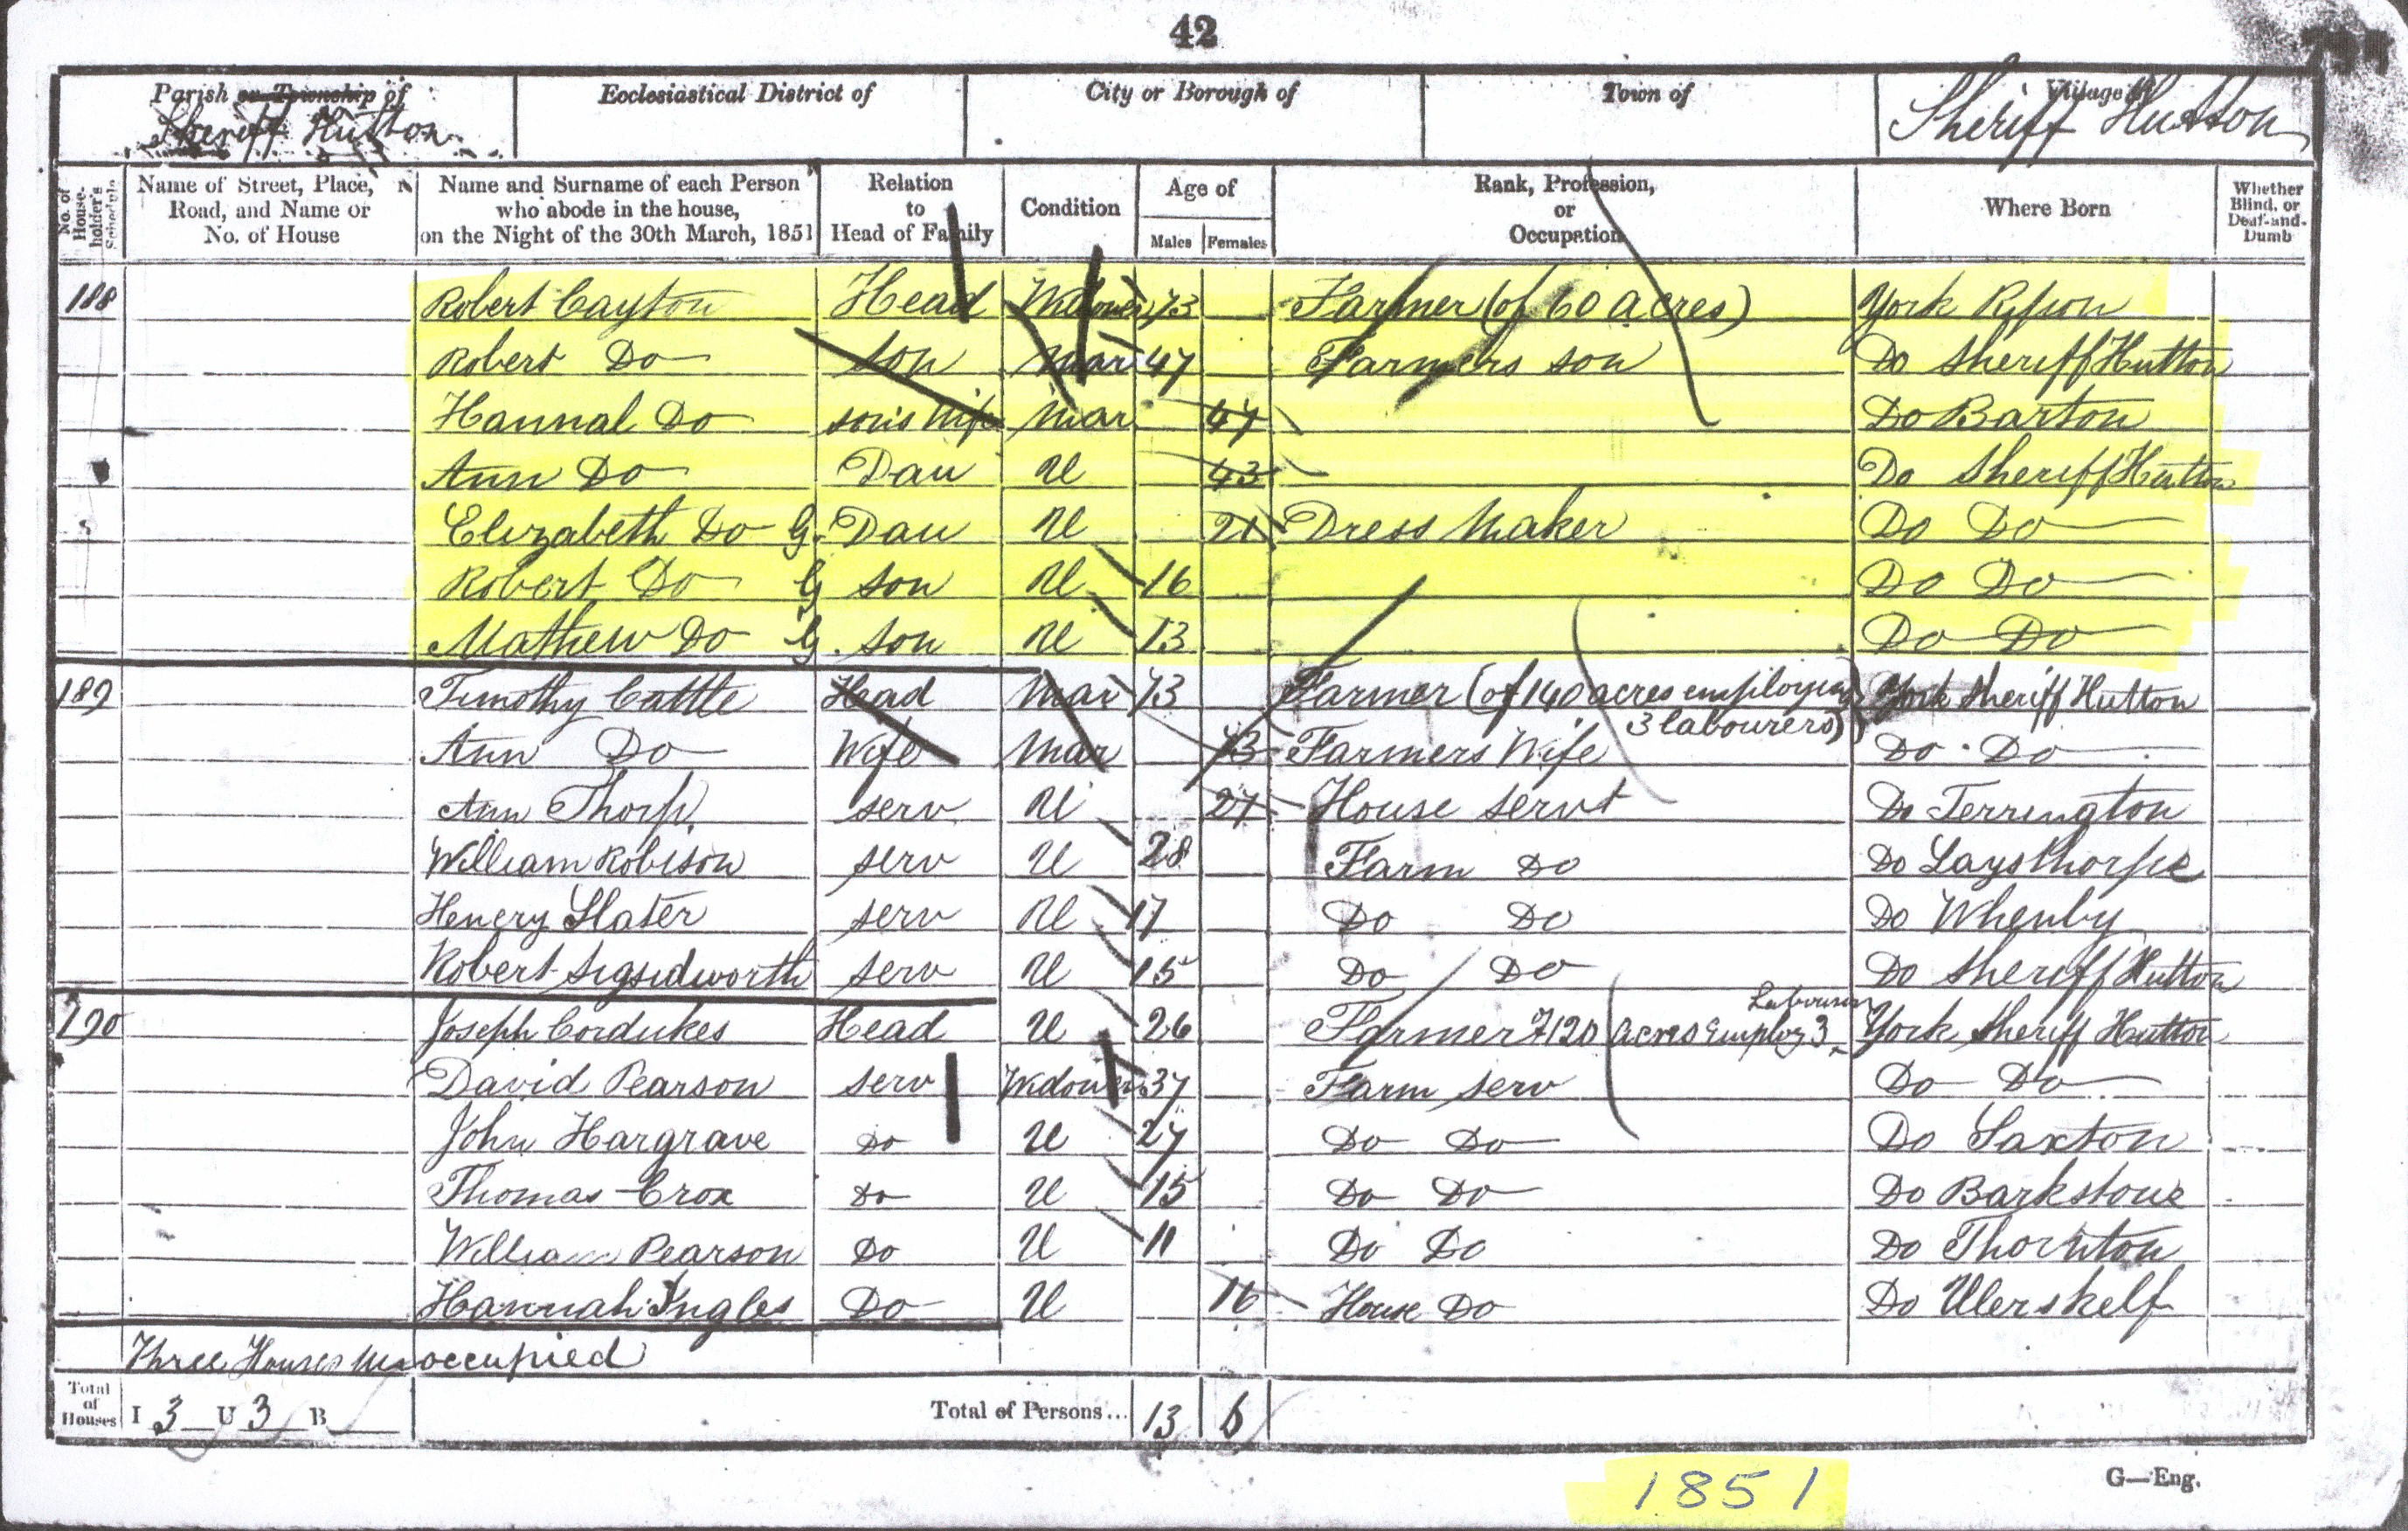 42
Parish or Township of
Sheriff Hutton
Ecclesiastical District of
City or Borough of
Town of
Village of
Sheriff Hutton
No. of House-holder's Schedule
Name of Street, Place, Road, and Name or No. of House
Name and Surname of each Person who abode in the house, on the Night of the 30th March, 1851
Relation to Head of Family
Condition
Age of
Males Females
Rank, Profession, or Occupation
Where Born
Whether Blind, or Deaf-and-Dumb
188 Robert Cayton Head Widower 73 Farmer (of 60 acres) York Ripon
Robert Do son Mar 47 Farmers son Do Sheriff Hutton
Hannal Do son's Wife Mar 47 Do Barton
Ann Do Dau U 43 Do Sheriff Hutton
Elizabeth Do G. Dau U 21 Dress Maker Do Do
Robert Do G son U 16 Do Do
Mathew Do G. son U 13 Do Do
189 Timothy Cattle Head Mar 73 Farmer (of 140 acres employing 3 labourers) York Sheriff Hutton
Ann Do Wife Mar 73 Farmers Wife Do Do
Ann Thorp serv U 27 House servt Do Terrington
William Robison serv U 28 Farm Do Do Laysthorpe
Henery Slater serv U 17 Do Do Do Whenby
Robert Sigsudworth serv U 15 Do Do Do Sheriff Hutton
190 Joseph Cordukes Head U 26 Farmer of 120 acres Employ 3 Labourers York Sheriff Hutton
David Pearson serv Widower 37 Farm serv Do Do
John Hargrave Do U 27 Do Do Do Saxton
Thomas Crox Do U 15 Do Do Do Barkstone
William Pearson Do U 11 Do Do Do Thornton
Hannah Ingles Do U 16 House Do Do Ulerskelf
Three Houses Unoccupied
Total of Houses I 3 U 3 B
Total of Persons... 13 6
1851
G—Eng.